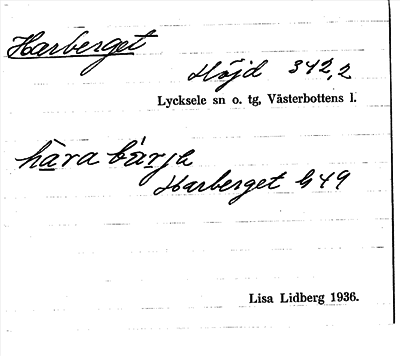 Harberget
Höjd 342,2
Lycksele sn o. tg, Västerbottens l.
hàra bárja
Harberget G49
Lisa Lidberg 1936.